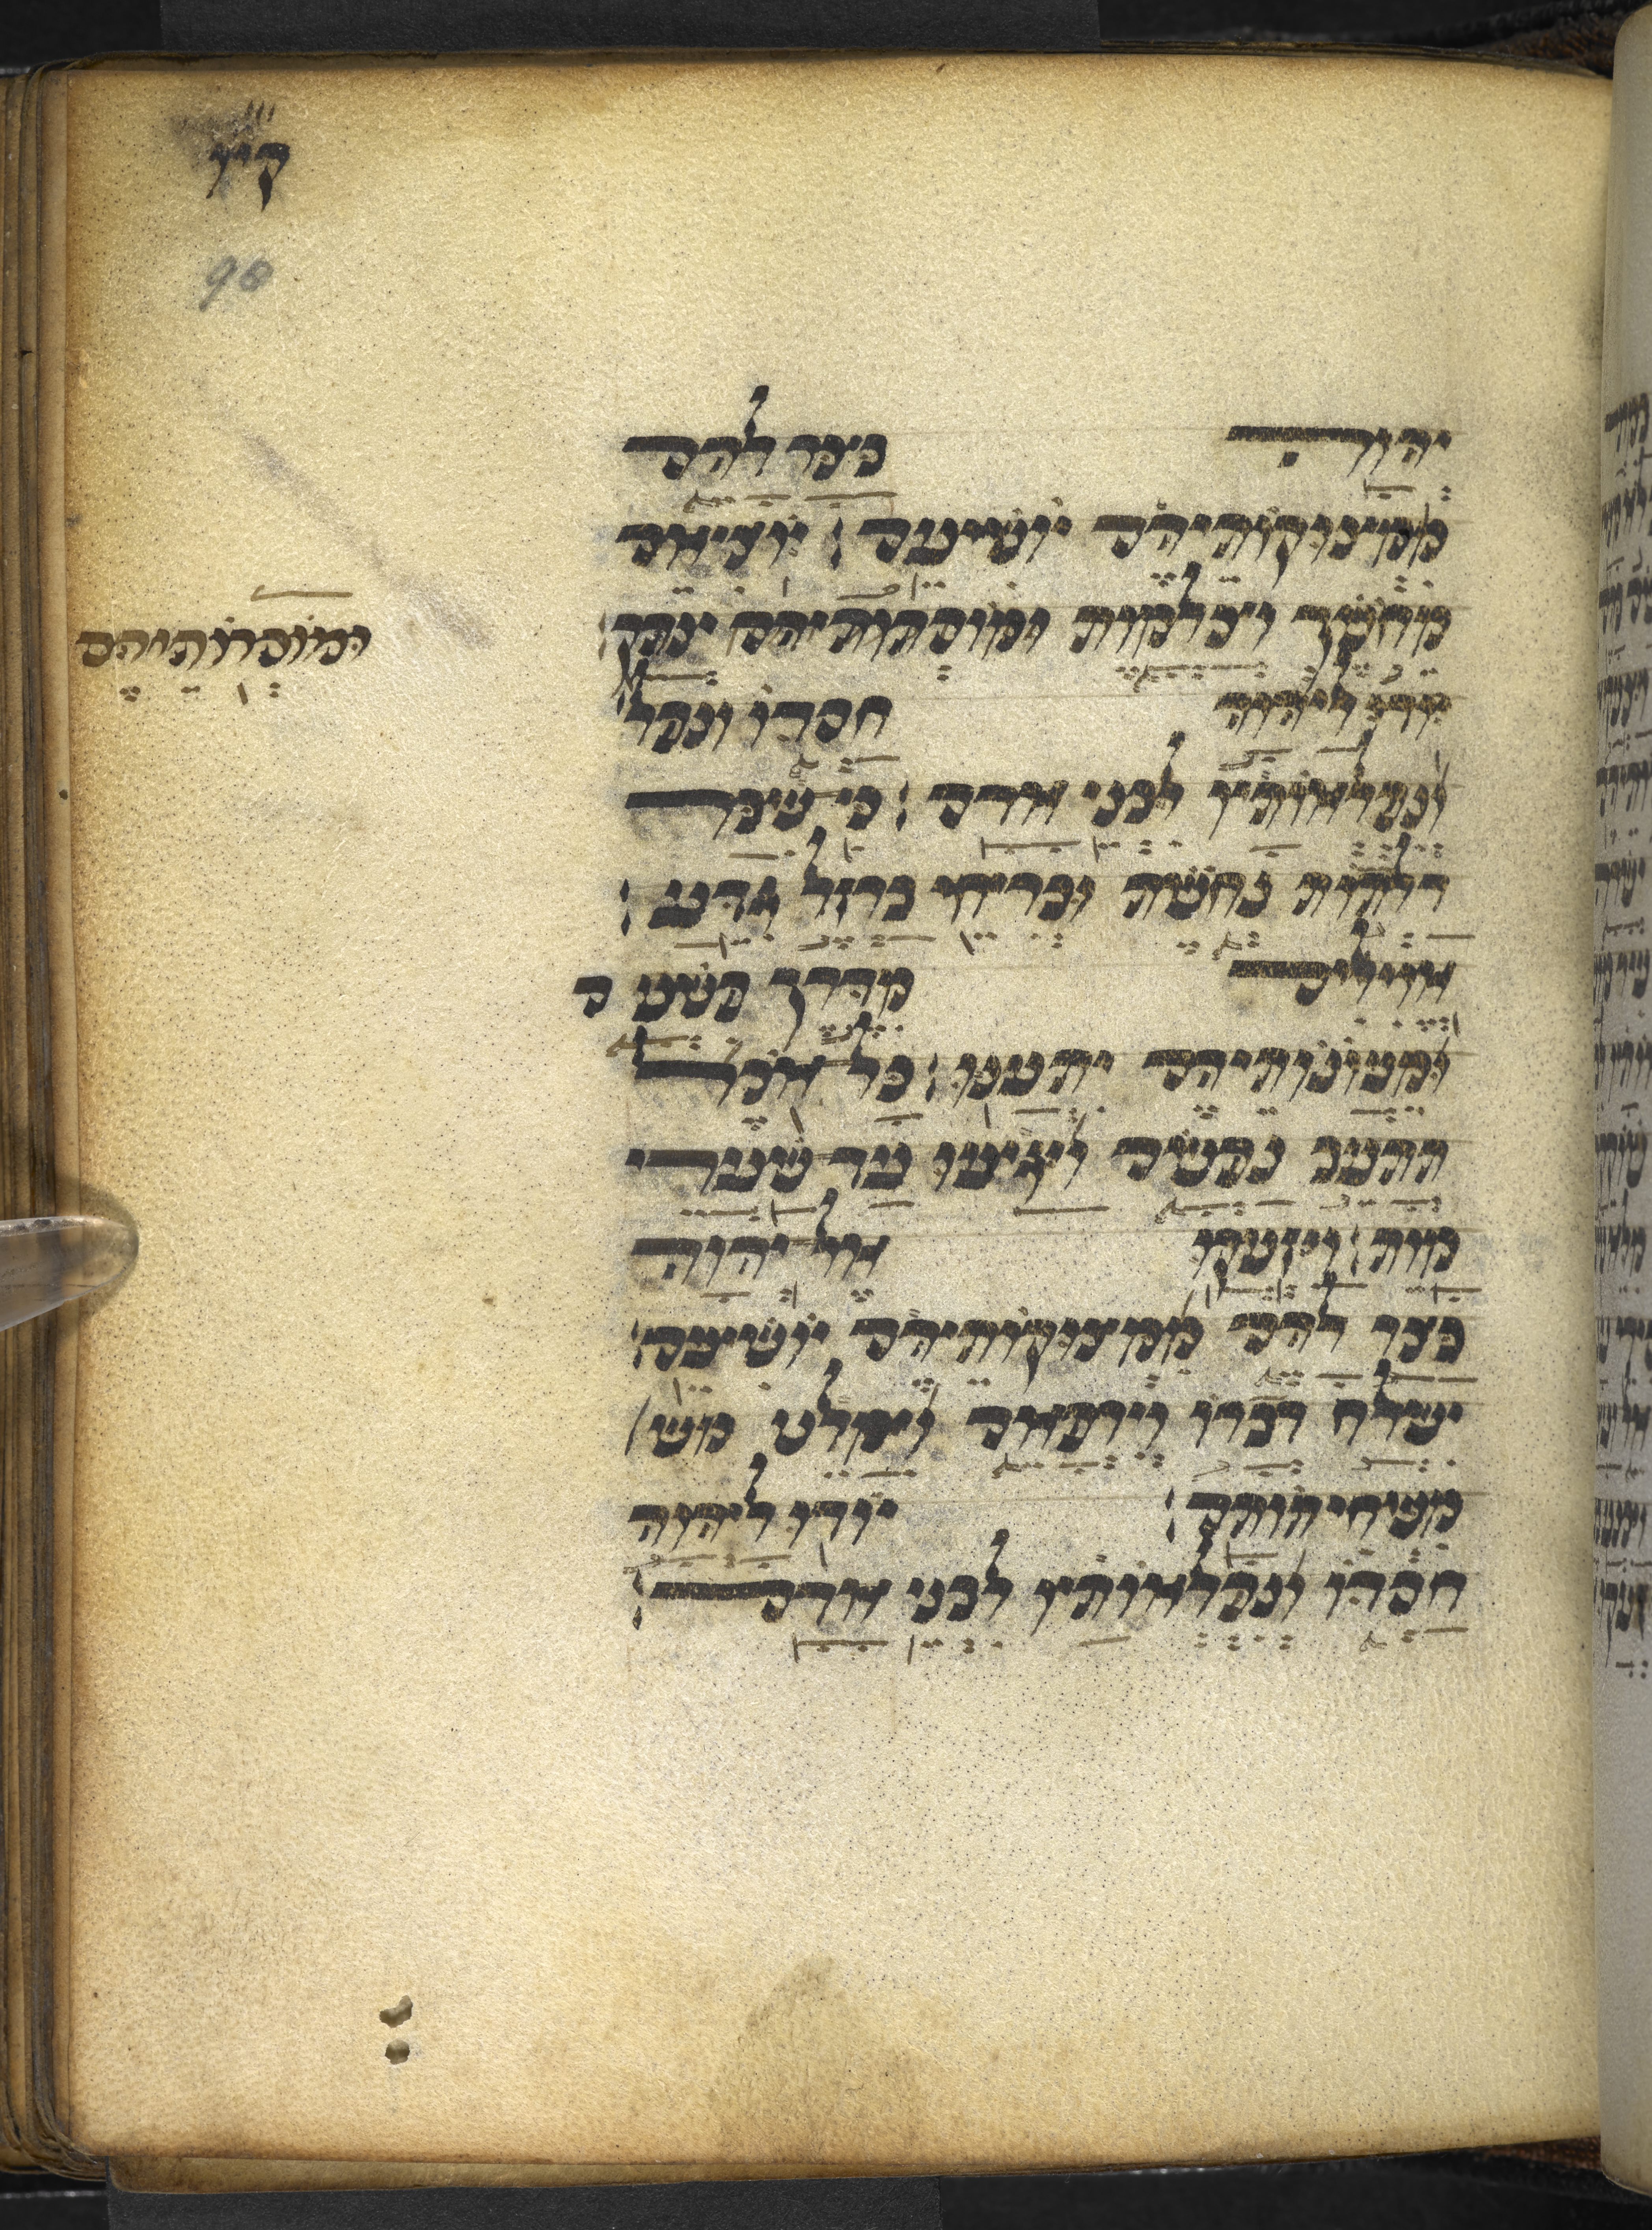 98
יהוה בצר להם
ממצוקותיהם יושיעם׃ יוציאם
מחשך וצלמות ומוסרותיהם ינתק׃
ומוסרותיהם
יודו ליהוה חסדו ונפל
ונפלאותיו לבני אדם׃ כי שבר
דלתות נחשת ובריחי ברזל גדע׃
אוילים מדרך פשעם
ומעונותיהם יתענו׃ כל אכל
תתעב נפשם ויגיעו עד שערי
מות׃ ויזעקו אל יהוה
בצר להם ממצוקותיהם יושיעם׃
ישלח דברו וירפאם וימלט מש
משחיתותם׃ יודו ליהוה
חסדו ונפלאותיו לבני אדם׃